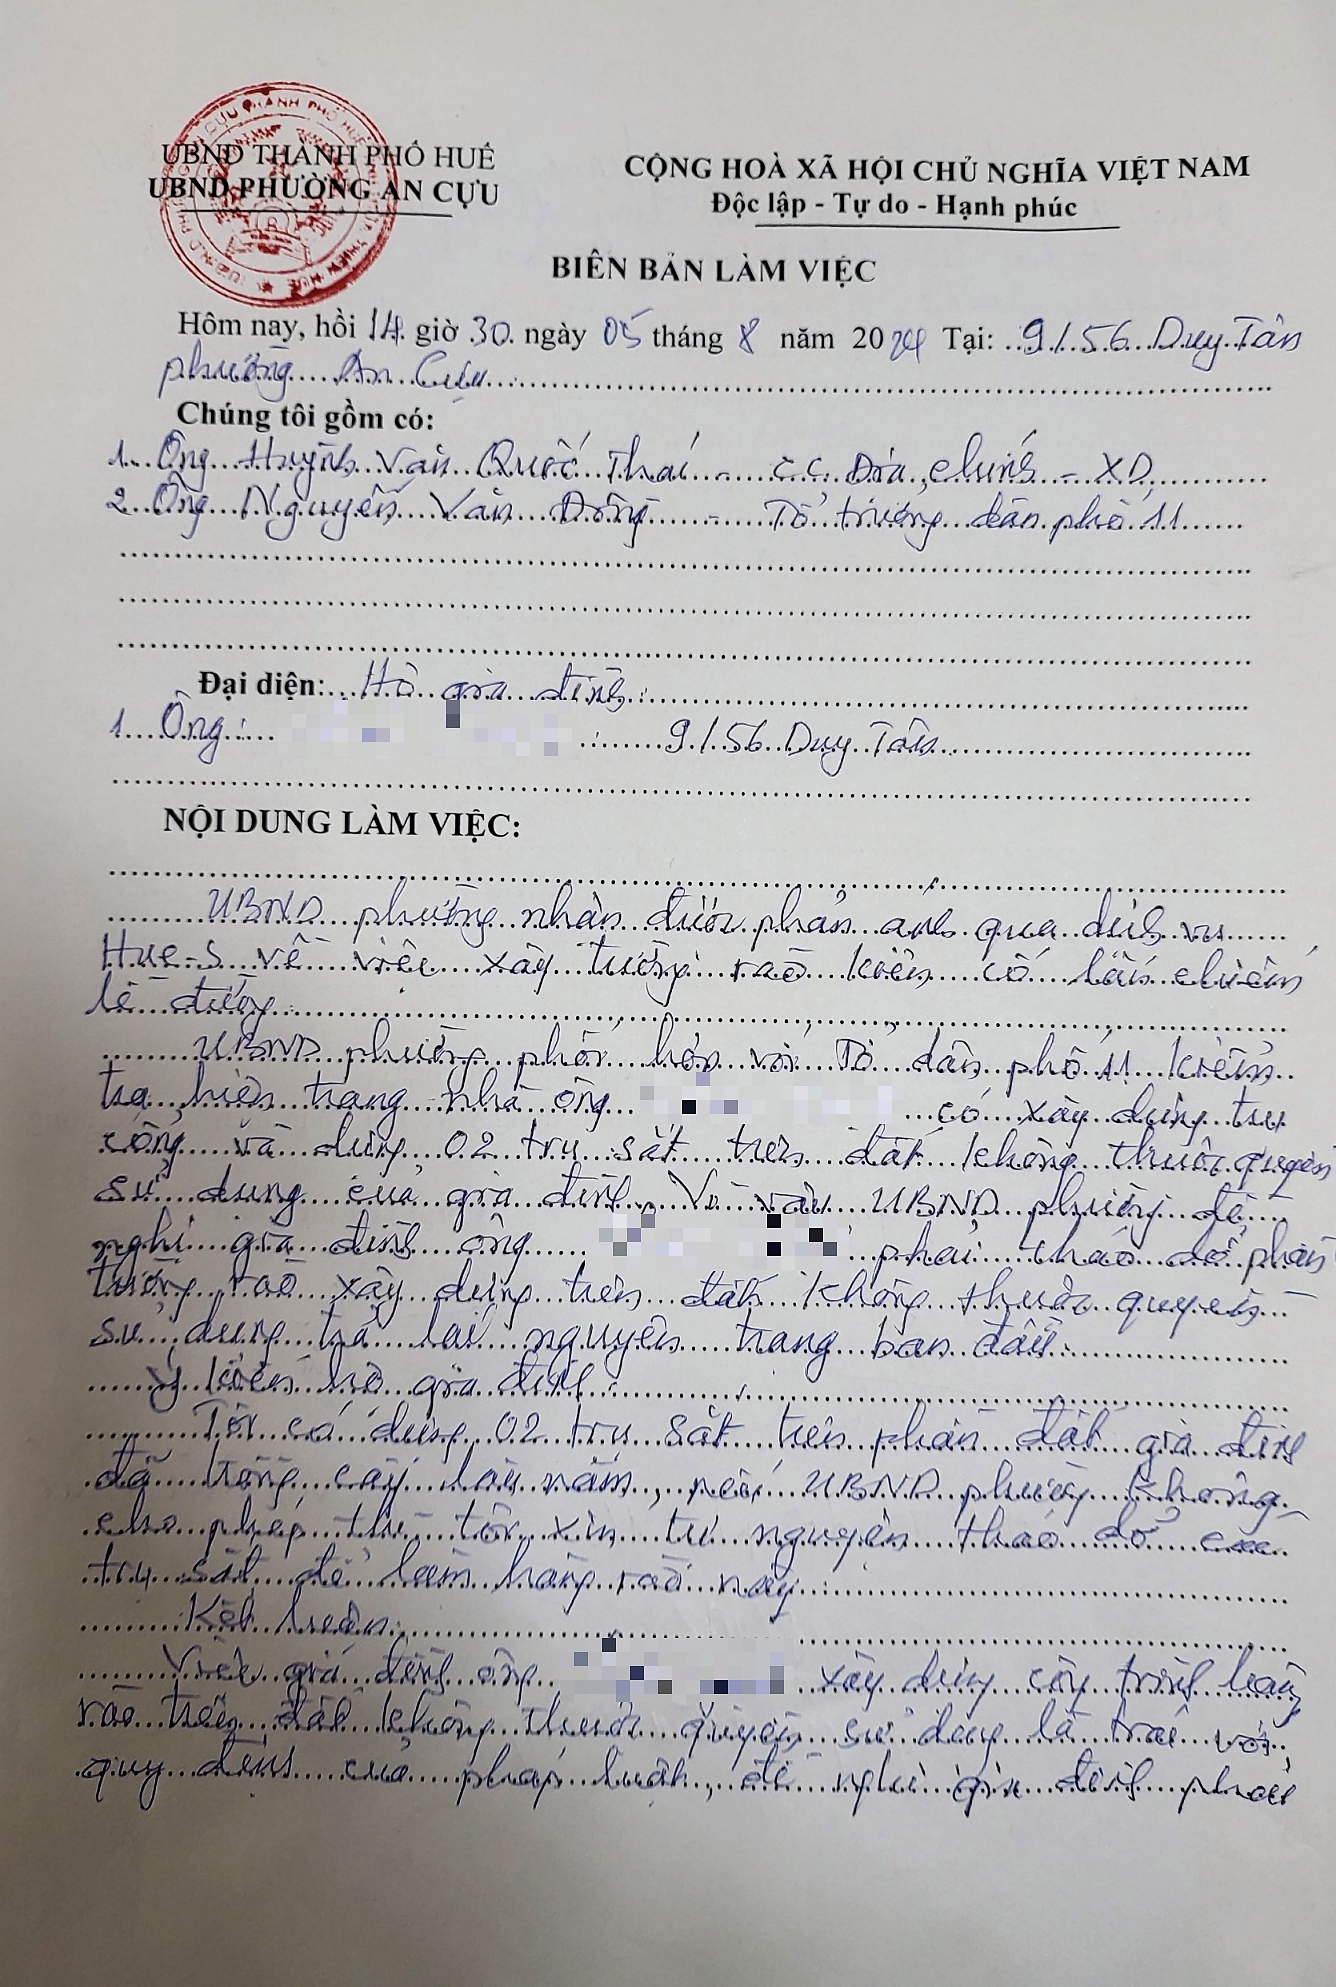 UBND THÀNH PHỐ HUẾ
UBND PHƯỜNG AN CỰU
CỘNG HOÀ XÃ HỘI CHỦ NGHĨA VIỆT NAM
Độc lập - Tự do - Hạnh phúc
BIÊN BẢN LÀM VIỆC
Hôm nay, hồi 14 giờ 30 ngày 05 tháng 8 năm 2024 Tại: 9/56 Duy Tân
phường An Cựu
Chúng tôi gồm có:
1. Ông Huỳnh Văn Quốc Thái - C.C. Địa chính - XD
2. Ông Nguyễn Văn Đông - Tổ trưởng dân phố 11
Đại diện: Hộ gia đình:
1. Ông: 9/56 Duy Tân
NỘI DUNG LÀM VIỆC:
UBND phường nhận được phản ánh qua dịch vụ
Hue-S về việc xây tường rào kiên cố lấn chiếm
lề đường
UBND phường phối hợp với Tổ dân phố 11 kiểm
tra hiện trạng nhà ông có xây dựng trụ
cổng và dựng 02 trụ sắt trên đất không thuộc quyền
sử dụng của gia đình. Vì vậy UBND phường đề
nghị gia đình ông phải tháo dỡ phần
tường rào xây dựng trên đất không thuộc quyền
sử dụng trả lại nguyên trạng ban đầu.
Ý kiến hộ gia đình:
Tôi có dựng 02 trụ sắt trên phần đất gia đình
đã trồng cây lâu năm, nếu UBND phường không
cho phép thì tôi xin tự nguyện tháo dỡ các
trụ sắt để làm hàng rào này.
Kết luận:
Việc gia đình ông xây dựng công trình hàng
rào trên đất không thuộc quyền sử dụng là trái với
quy định của pháp luật, đề nghị gia đình phải